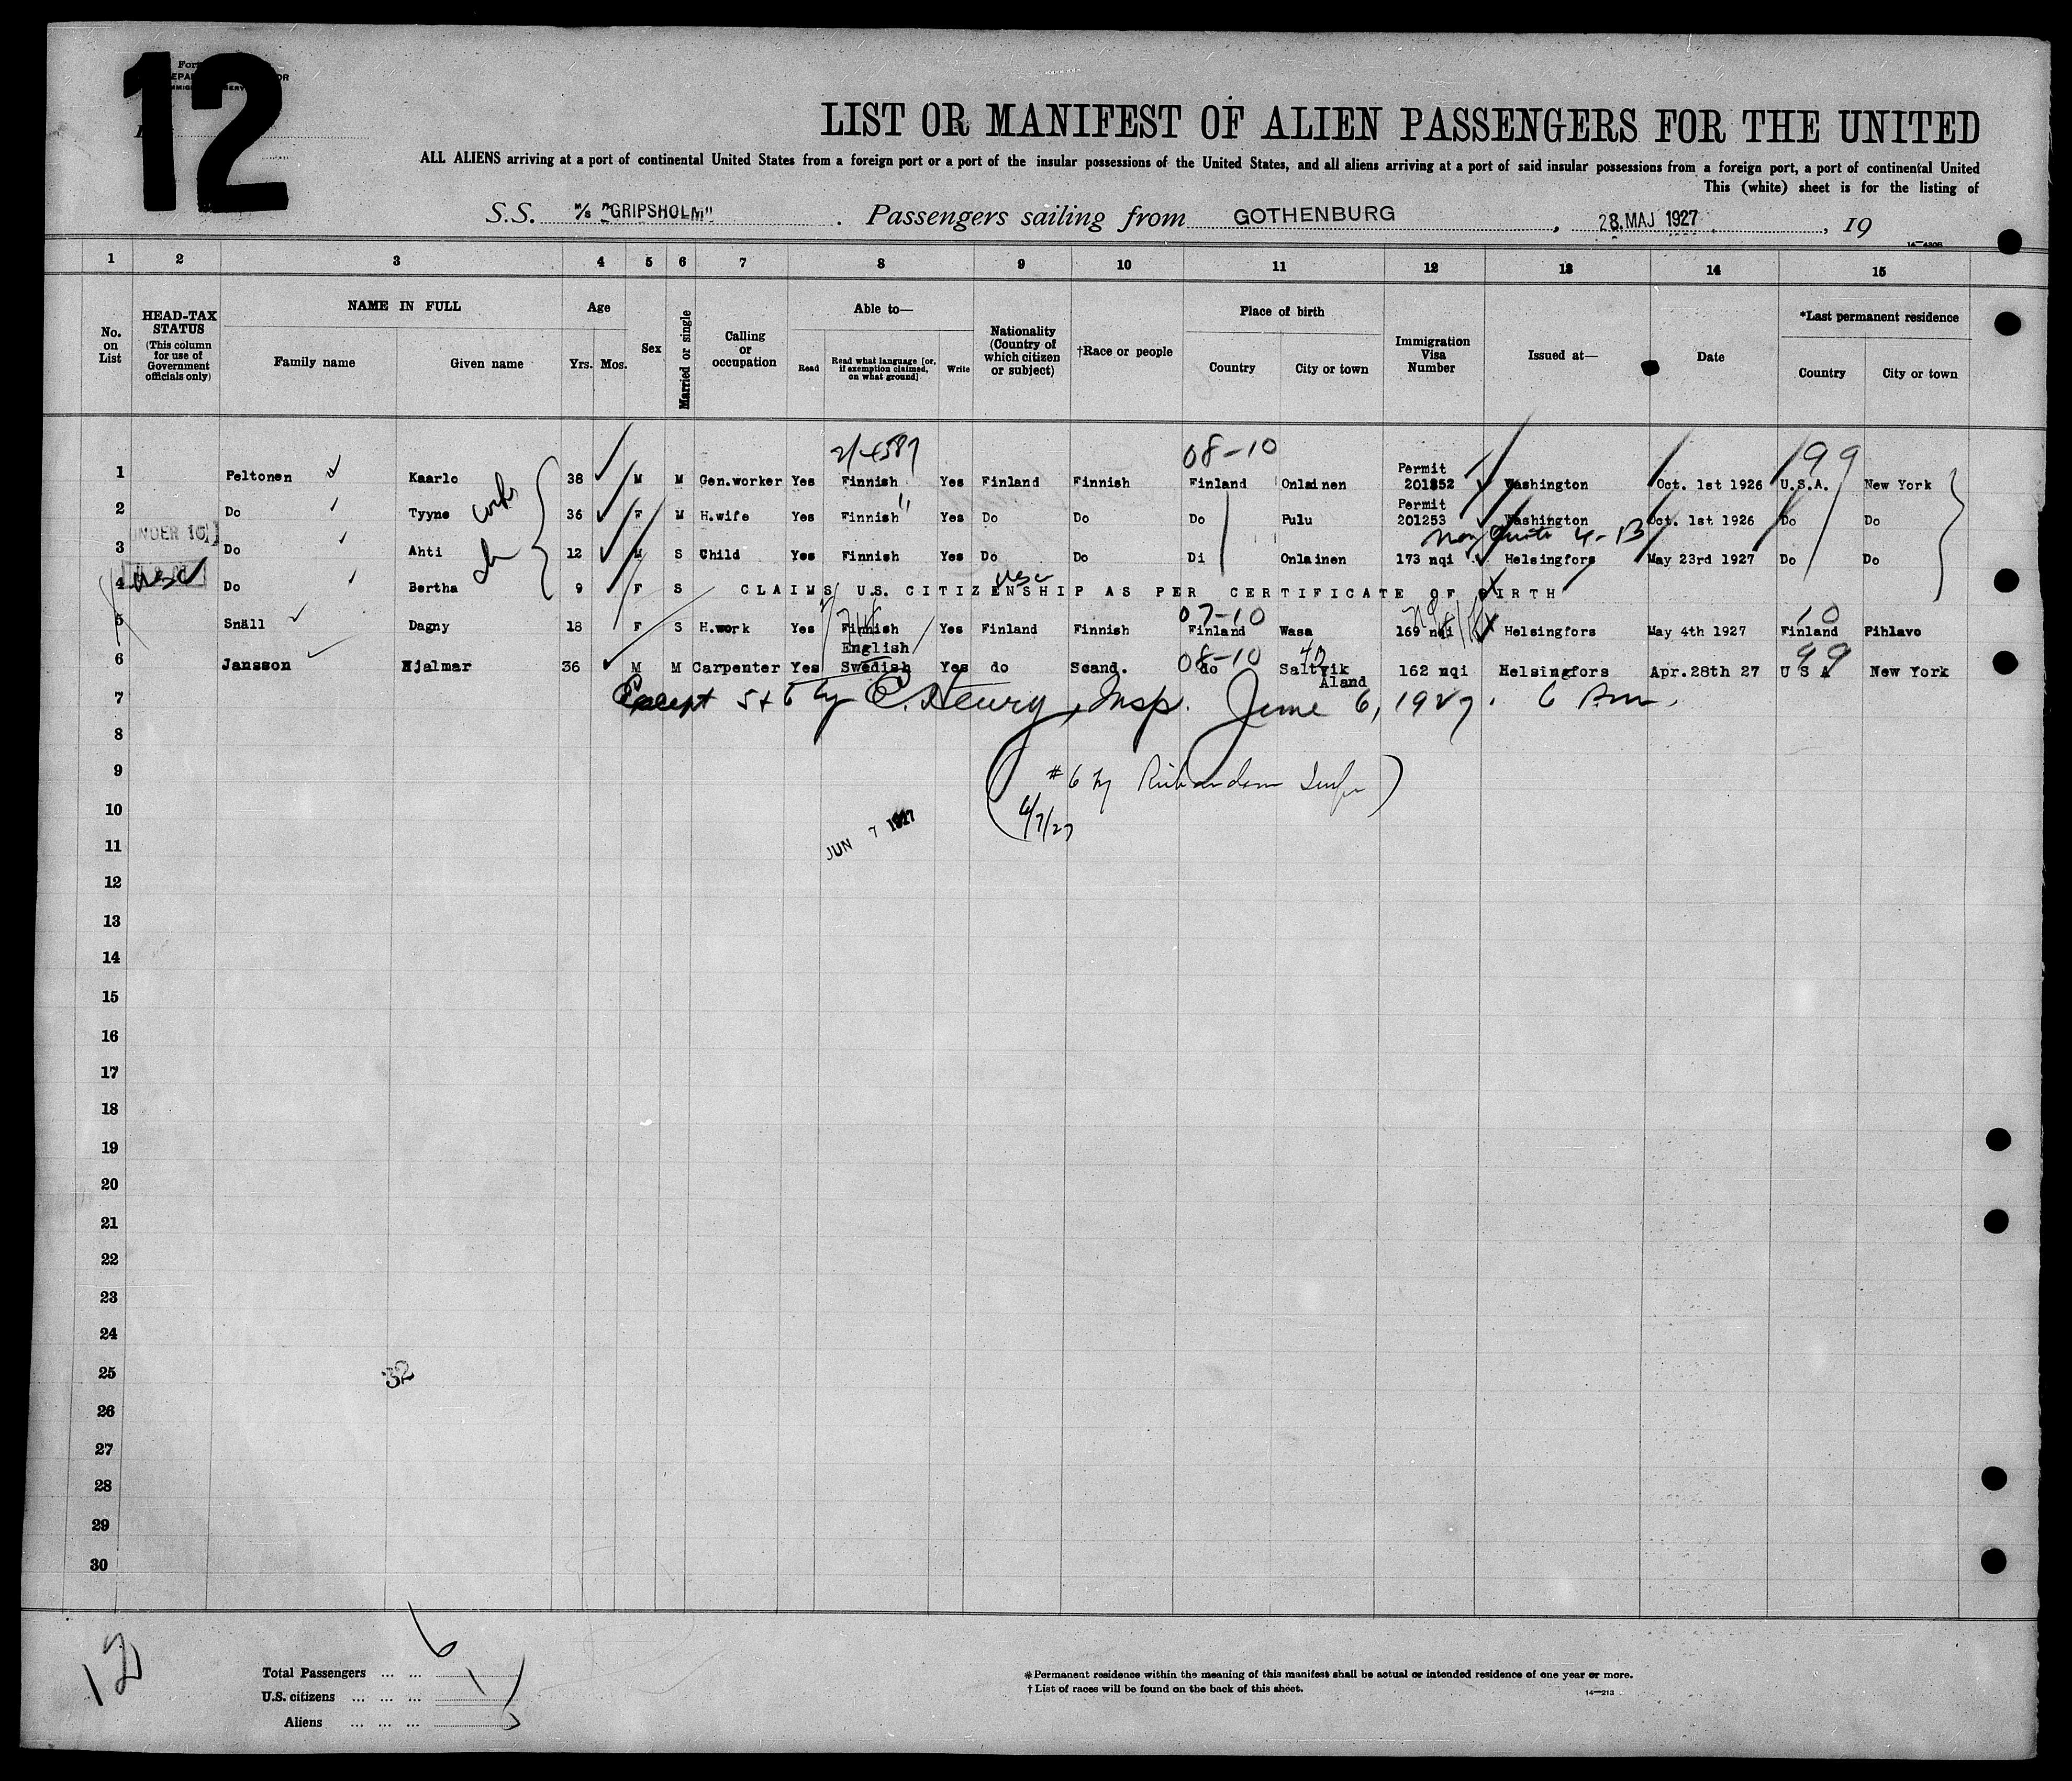 12
LIST OR MANIFEST OF ALIEN PASSENGERS FOR THE UNITED
ALL ALIENS arriving at a port of continental United States from a foreign port or a port of the insular possessions of the United States, and all aliens arriving at a port of said insular possessions from a foreign port, a port of continental United
This (white) sheet is for the listing of
S.S. M/S "GRIPSHOLM". Passengers sailing from GOTHENBURG, 28. MAJ 1927, 19
1 2 3 4 5 6 7 8 9 10 11 12 13 14 15
No. on List
HEAD-TAX STATUS (This column for use of Government officials only)
NAME IN FULL
Family name Given name
Age
Yrs. Mos.
Sex
Married or single
Calling or occupation
Able to—
Read Read what language [or, if exemption claimed, on what ground] Write
Nationality (Country of which citizen or subject)
†Race or people
Place of birth
Country City or town
Immigration Visa Number
Issued at—
Date
*Last permanent residence
Country City or town
2/-4587 08-10 99
1 Peltonen Kaarlo 38 M M Gen.worker Yes Finnish Yes Finland Finnish Finland Onlainen Permit 201852 Washington Oct. 1st 1926 U.S.A. New York
2 Do Tyyne 36 F M H.wife Yes Finnish " Yes Do Do Do Pulu Permit 201253 Washington Oct. 1st 1926 Do Do
UNDER 16 Non Quota 4-B
3 Do Ahti 12 M S Child Yes Finnish Yes Do Do Di Onlainen 173 nqi Helsingfors May 23rd 1927 Do Do
4 USC Do Bertha 9 F S CLAIMS U.S. CITIZENSHIP AS PER CERTIFICATE OF BIRTH
usc
07-10 10
5 Snäll Dagny 18 F S H.work Yes Finnish Yes Finland Finnish Finland Wasa 169 nqi Helsingfors May 4th 1927 Finland Pihlavo
08-10 99
6 Jansson Hjalmar 36 M M Carpenter Yes English Swedish Yes do Scand. do Saltvik Aland 162 nqi Helsingfors Apr.28th 27 U S A New York
7 Except 5+6 by C. Henry, Insp. June 6, 1927.
8
9 (#6 by Richardson
10 6/7/27
11 JUN 7 1927
12
13
14
15
16
17
18
19
20
21
22
23
24
25 32
26
27
28
29
30
12
Total Passengers ... ... 6
U.S. citizens ... ... ... 1
Aliens ... ... ... 5
*Permanent residence within the meaning of this manifest shall be actual or intended residence of one year or more.
†List of races will be found on the back of this sheet.
14—213